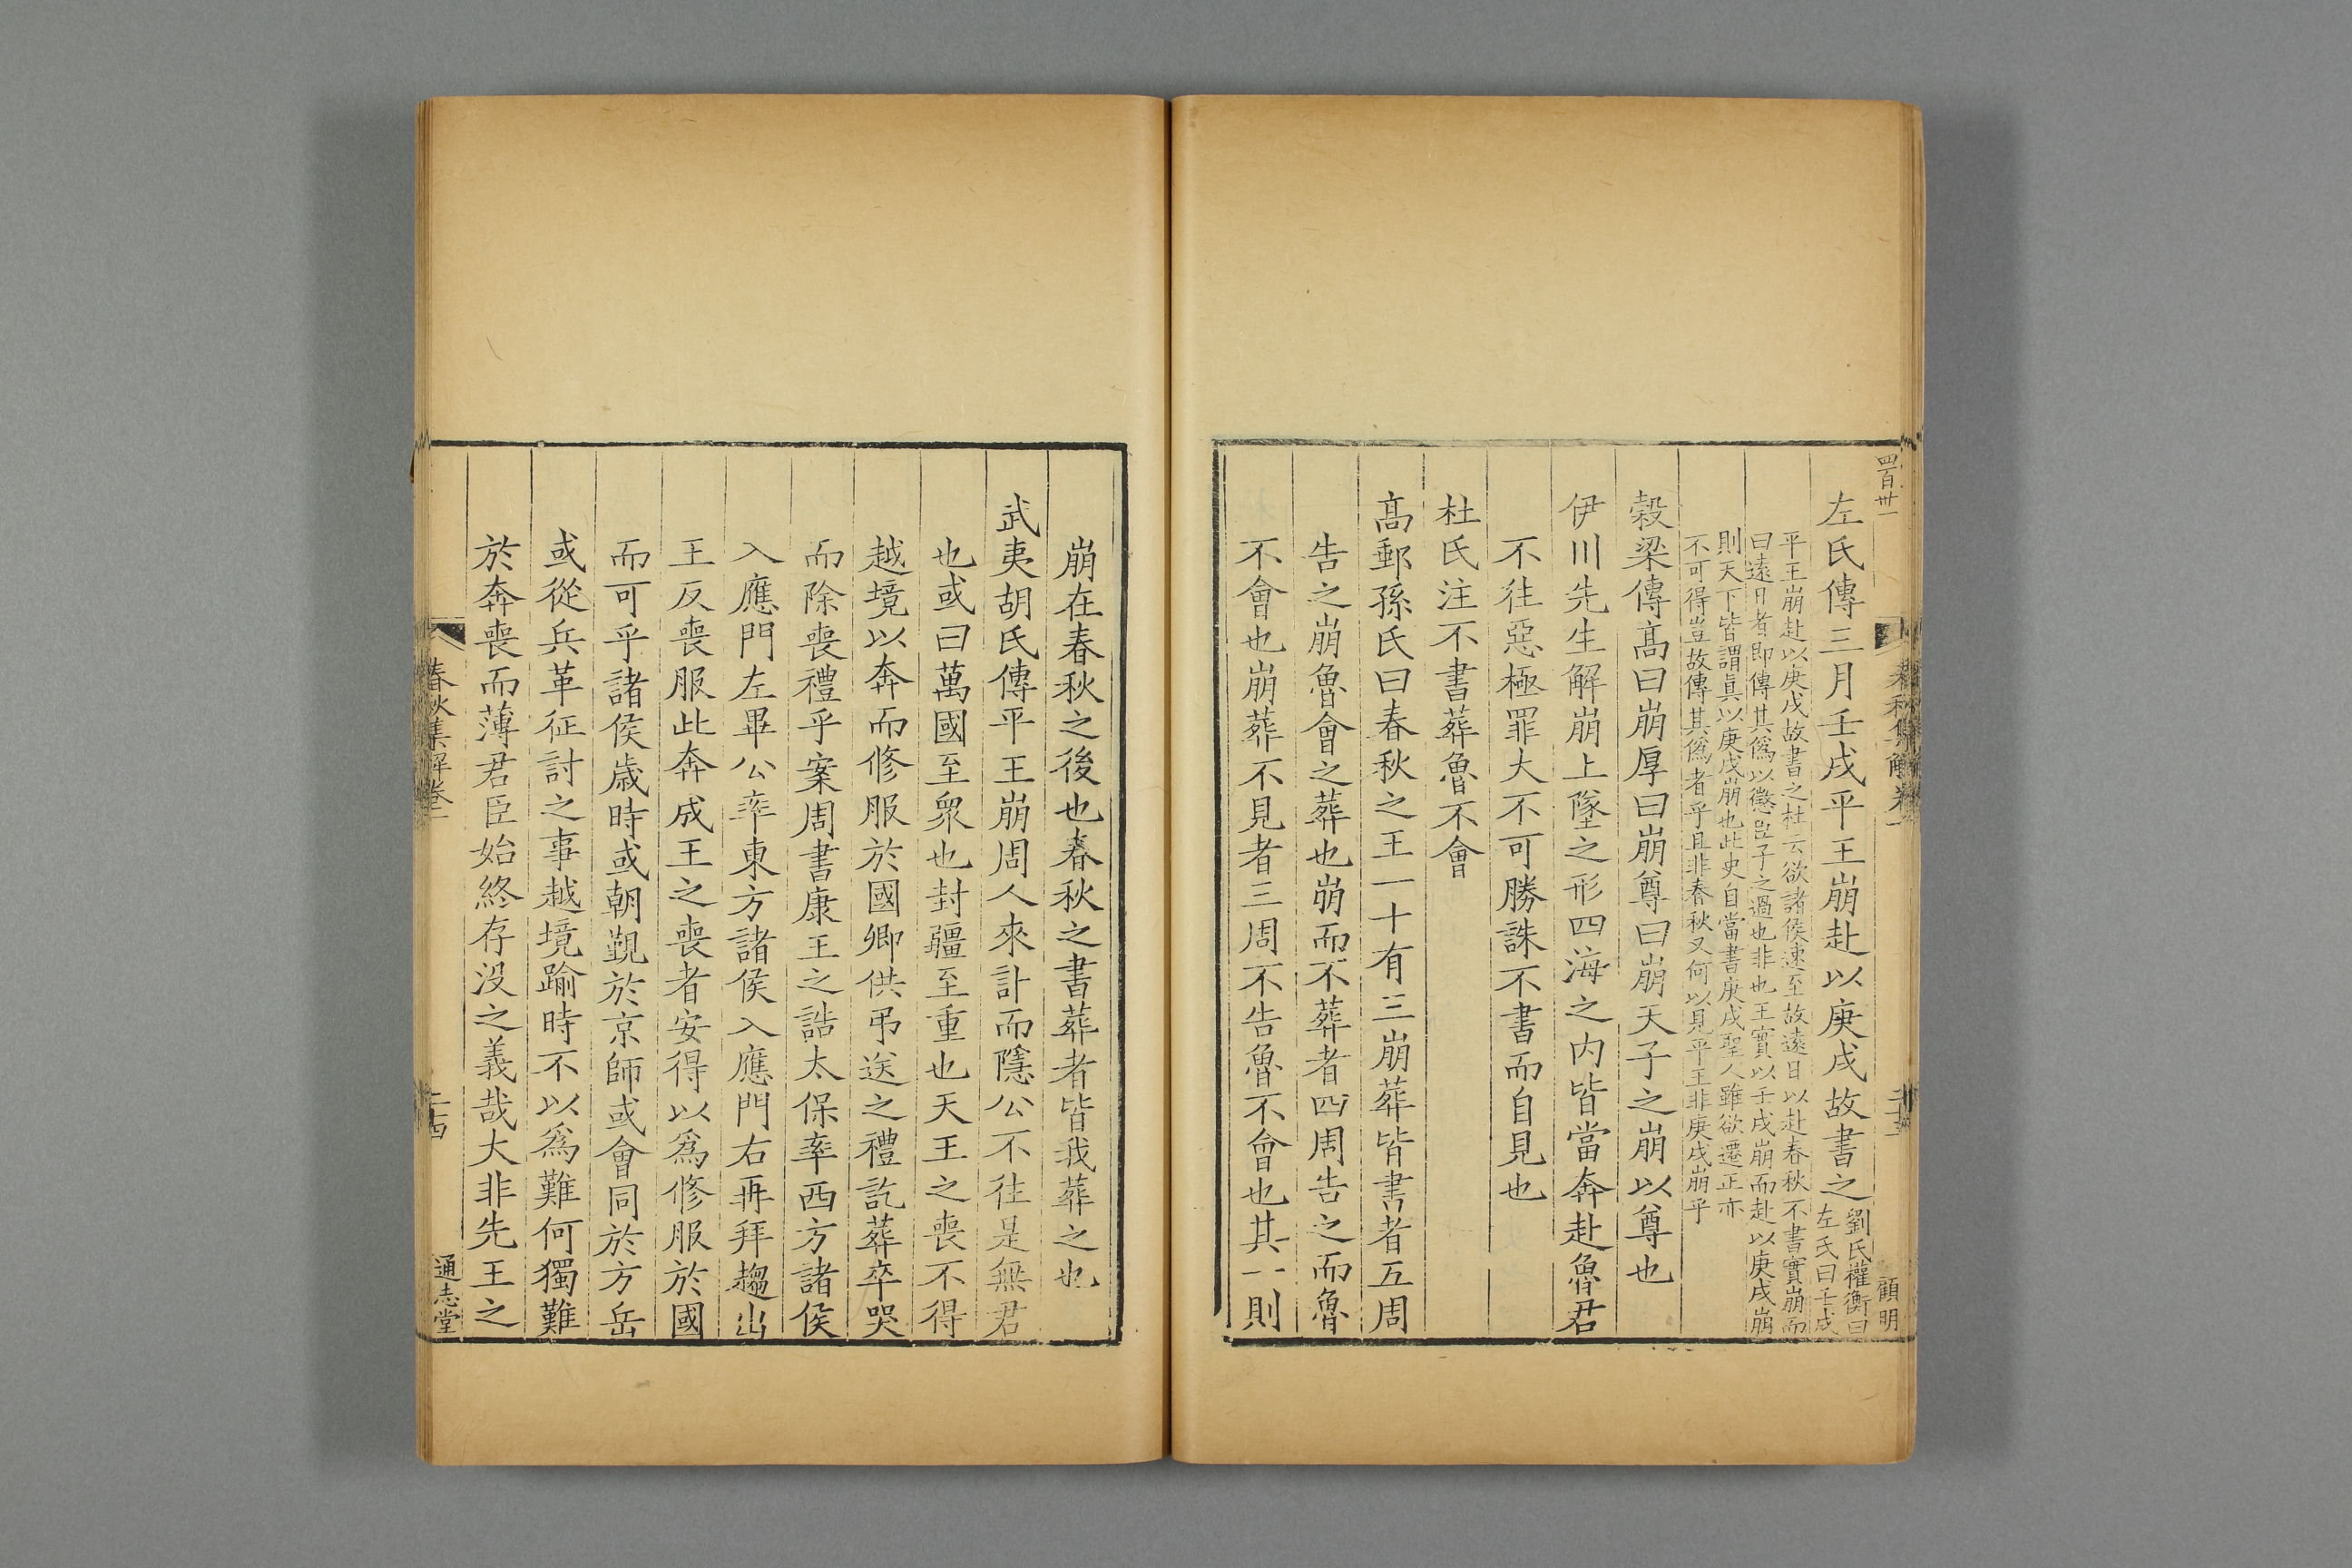 四百卅一
春秋集解卷一
顧明
左氏傳三月壬戌平王崩赴以庚戌故書之劉氏權衡曰
左氏曰壬戌
平王崩赴以庚戌故書之杜云欲諸侯速至故遠日以赴春秋不書實崩而
曰遠日者即傳其僞以懲臣子之過也非也王實以壬戌崩而赴以庚戌崩
則天下皆謂眞以庚戌崩也此史自當書庚戌聖人雖欲遷正亦
不可得豈故傳其僞者乎且非春秋又何以見平王非庚戌崩乎
穀梁傳髙曰崩厚曰崩尊曰崩天子之崩以尊也
伊川先生解崩上墜之形四海之内皆當奔赴魯君
不往惡極罪大不可勝誅不書而自見也
杜氏注不書葬魯不會
髙郵孫氏曰春秋之王一十有三崩葬皆書者五周
告之崩魯會之葬也崩而不葬者四周告之而魯
不會也崩葬不見者三周不告魯不會也其一則
崩在春秋之後也春秋之書葬者皆我葬之也
武夷胡氏傳平王崩周人來訃而隱公不往是無君
也或曰萬國至衆也封疆至重也天王之喪不得
越境以奔而修服於國卿供弔送之禮訖葬卒哭
而除喪禮乎案周書康王之誥太保率西方諸侯
入應門左畢公率東方諸侯入應門右再拜趨出
王反喪服此奔成王之喪者安得以爲修服於國
而可乎諸侯歲時或朝覲於京師或會同於方岳
或從兵革征討之事越境踰時不以爲難何獨難
於奔喪而薄君臣始終存没之義哉大非先王之
春秋集解卷一
二十四
通志堂